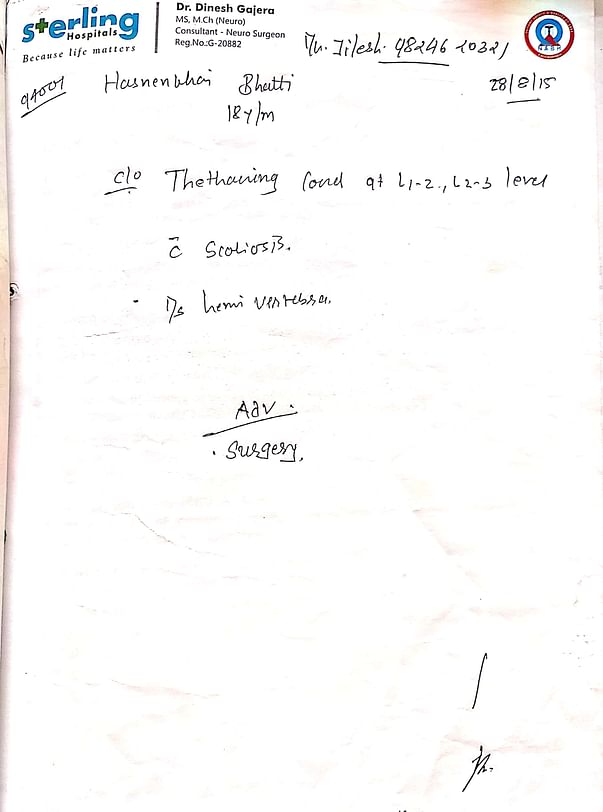 sterling
Hospitals
Because life matters
Dr. Dinesh Gajera
MS, M.Ch (Neuro)
Consultant - Neuro Surgeon
Reg.No.:G-20882
Jilesh 98246 20321
NABH
Hasnenbhai Bhatti
28/8/15
18Y/M
c/o Thethaering Cord at L1-2, L2-3 level
c̄ Scoliosis.
hemi vertebra.
Adv.
. Surgery.